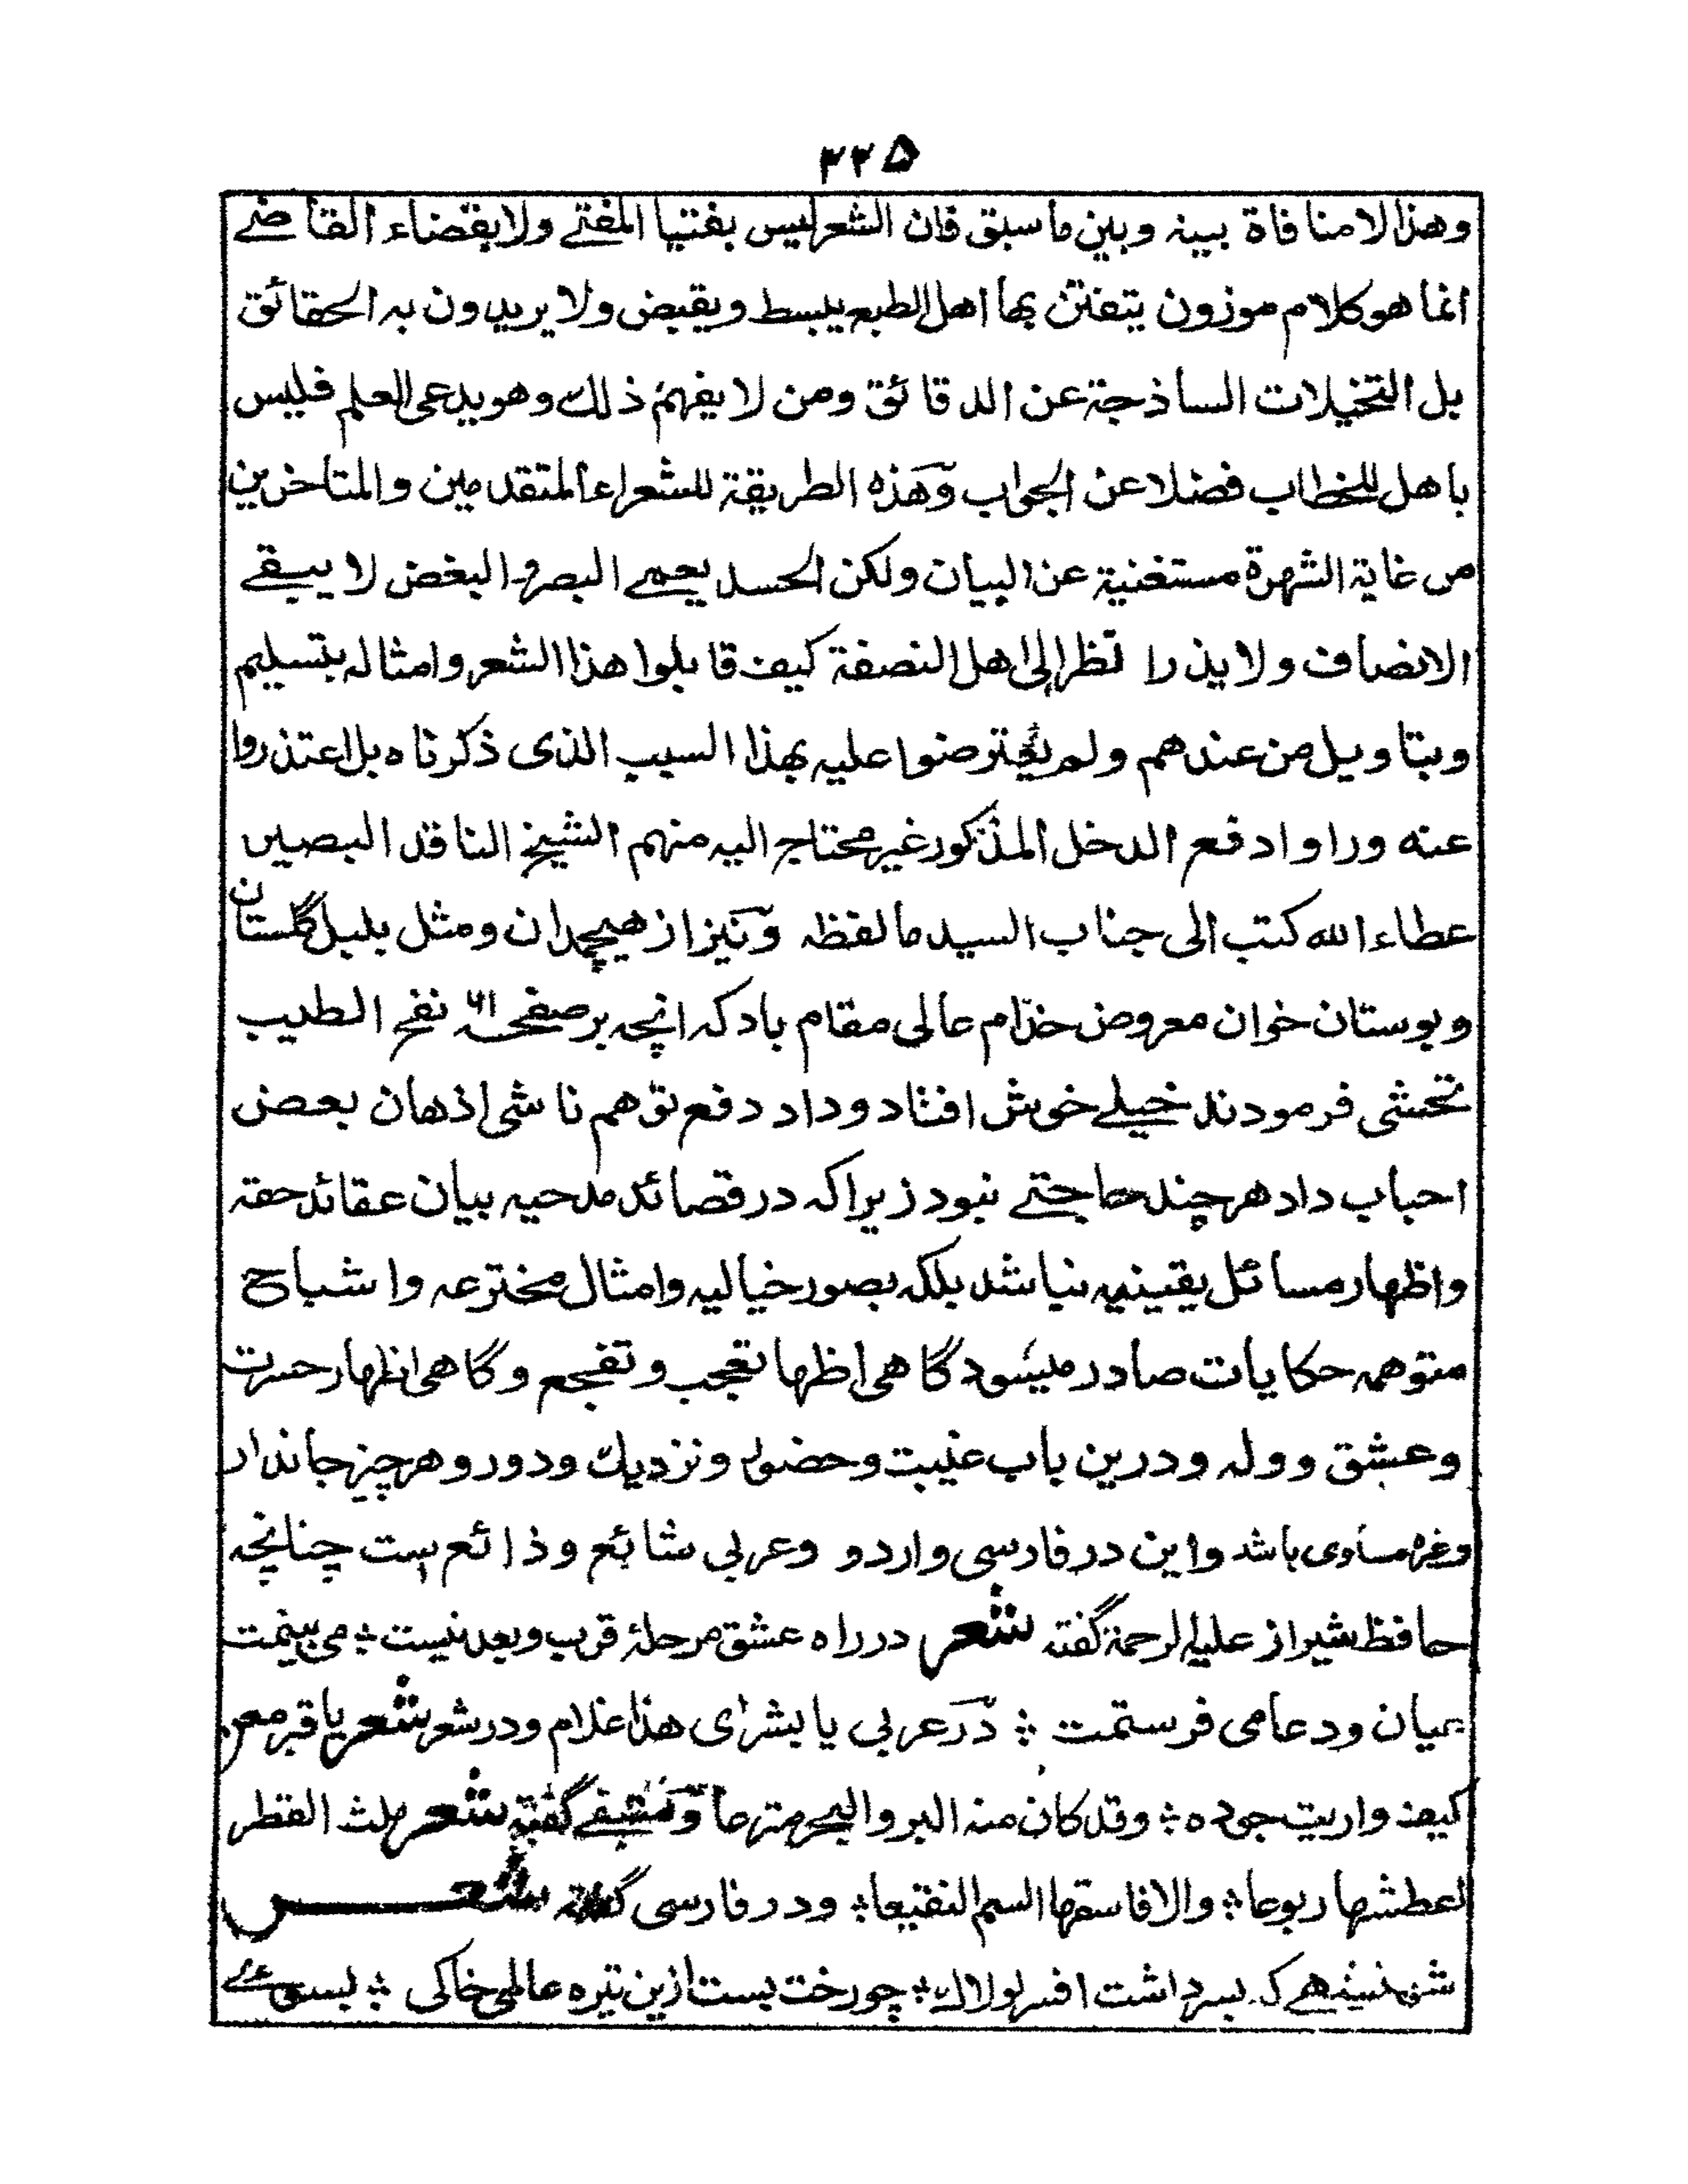 ۲۲۵
وهذا لا منافاة بينه وبين ما سبق فان الشعر ليس بفتيا المفتے ولا بقضاء القاضے
انما هو كلام موزون يتفنن بها اهل الطبع يبسط ويقبض ولا يريدون به الحقائق
بل التخيلات الساذجة عن الدقائق ومن لا يفهم ذلك وهو يدعى العلم فليس
باهل للخطاب فضلا عن الجواب وهذه الطريقة للشعراء المتقدمين والمتاخرين
من غاية الشهرة مستغنية عن البيان ولكن الحسد يعمے البصر والبغض لا يبقے
الانصاف ولا يذر انظر الى اهل النصفة كيف قابلوا هذا الشعر وامثاله بتسليم
وبتاويل من عندهم ولم يعترضوا عليه بهذا السبب الذى ذكرناه بل اعتذروا
عنه وراوا دفع الدخل المذكور غير محتاج اليه منهم الشيخ الناقد البصير
عطاء الله كتب الى جناب السيد ما لفظه ونيز از هيچمدان ومثل بلبل گلستان
وبوستان خوان معروض خدام عالى مقام باد كه انچه بر صفحه ۶۱ نفح الطيب
تحشى فرمودند خيلے خوش افتاد وداد دفع توهم ناشى اذهان بعض
احباب داد هر چند حاجتے نبود زيرا كه در قصائد مدحيه بيان عقائد حقه
واظهار مسائل يقينيه نباشد بلكه بصور خياليه وامثال مخترعه واشباح
متوهمه حكايات صادر ميشود گاهى اظهار تعجب وتفجع وگاهى اظهار حسرت
وعشق ووله ودرين باب غيبت وحضور ونزديك ودور وهر چيز جاندار
وغيره مساوى باشد واين در فارسى واردو وعربى شائع وذائع است چنانچه
حافظ شيراز عليه الرحمة گفته شعر در راه عشق مرحلهٔ قرب وبعد نيست ؞ مى بينمت
عيان ودعا مى فرستمت ؞ در عربى يا بشراى هذا غلام ودر شعر شعر يا قبر معن
كيف واريت جوده ؞ وقد كان منه البر والبحر مترعا ومتنبے گفته شعر ملث القطر
اعطشها ربوعا ؞ والا فاسقها السم النقيعا ؞ ودر فارسى گفته شعر
شهنشهے كه بسر داشت افسر لولاك ؞ چو رخت بست ازين تيره عالم خاكى ؞ بسوے